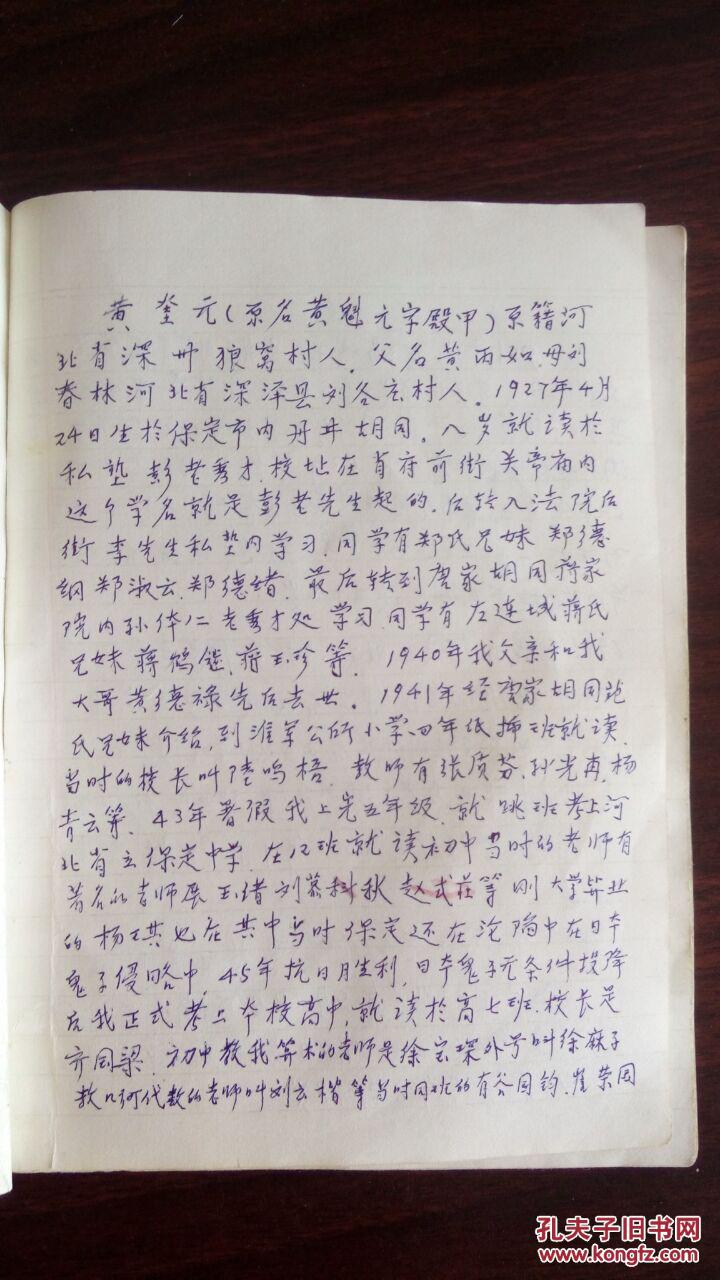 黄奎元(原名黄魁元字殿甲)原籍河
北省深州狼窝村人.父名黄丙如.母刘
春林河北省深泽县刘各庄村人.1927年4月
24日生於保定市内丹井胡同.八岁就读於
私塾彭老秀才.校址在肖府前街关帝庙内
这个学名就是彭老先生起的.后转入法院后
街李先生私塾内学习.同学有郑氏兄妹郑德
纲郑淑云.郑德绪.最后转到唐家胡同蒋家
院内孙倬仁老秀才处学习.同学有左连城蒋氏
兄妹蒋鹤.蒋玉珍等.1940年我父亲和我
大哥黄德禄先后去世.1941年经唐家胡同
氏兄妹介绍,到淮军公所小学四年级插班就读.
当时的校长叫陆鸣梧.教师有张质芬.孙光再.杨
青云等.43年暑假我上完五年级.就跳班考上河
北省立保定中学.在12班就读初中当时的老师有
著名的老师展玉绪刘慕秋赵式庄等刚大学毕业
的杨其也在其中当时保定还在沦陷中在日本
鬼子侵略中,45年抗日胜利,日本鬼子无条件投降
后我正式考上本校高中,就读於高七班.校长是
齐国梁.初中教我算术的老师是徐宝琛外号叫徐麻子
教几何代数的老师叫刘云楷等当时同班的有谷同钧.崔荣因
孔夫子旧书网
www.kongfz.com